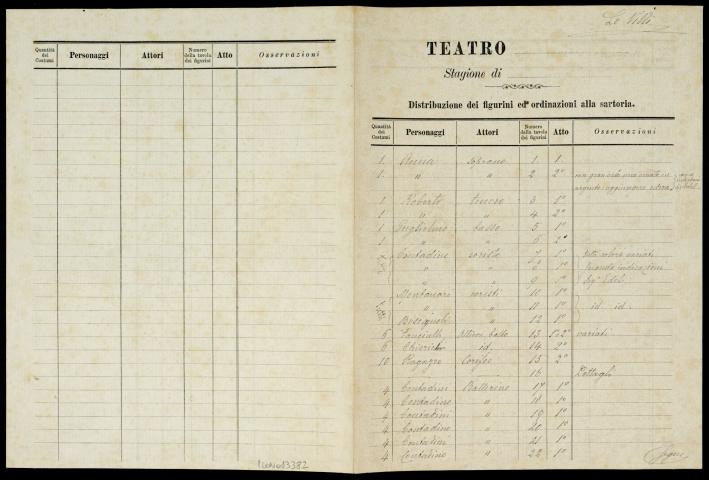 Quantità dei Costumi Personaggi Attori Numero della tavola dei figurini Atto Osservazioni
Le Villi
TEATRO
Stagione di
Distribuzione dei figurini ed ordinazioni alla sartoria.
Quantità dei Costumi Personaggi Attori Numero della tavola dei figurini Atto Osservazioni
1 Anna soprano 1 1
1 " " 2 2º
argento aggiungere
1 Roberto tenore 3 1º
1 " " 4 2º
1 Guglielmo basso 5 1º
1 " " 6 2º
Contadine coriste 7 1º tutte colori variati
" " 8 1º secondo indicazioni
" " 9 1º Sigr Edel
Montanari coristi 10 1º
" " 11 1º id. id.
" 12 1º
6 13 1º 2º variati
6 id. 14 2º
10 Ragazze Corifee 15 2º
16 Dettagli
4 Contadini Ballerine 17 1º
4 Contadine " 18 1º
4 Contadini " 19 1º
4 Contadine " 20 1º
4 Contadini " 21 1º
4 Contadine " 22 1º
Segue